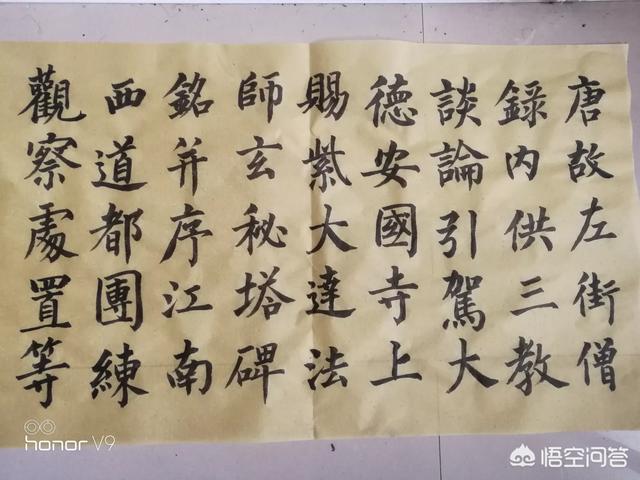 唐故左街僧
録内供三教
談論引駕大
德安國寺上
賜紫大達法
師玄秘塔碑
銘并序江南
西道都團練
觀察處置等
honor V9
悟空问答